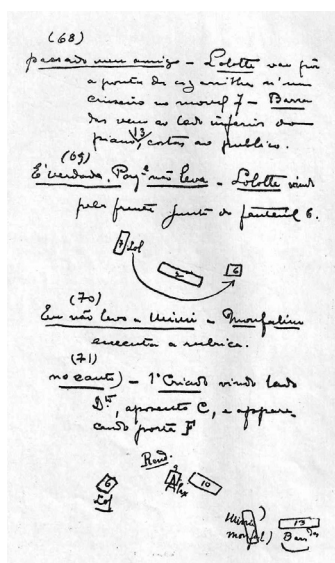 (68)
passado meu amigo - Lolotte vae pôr
a ponta do cigarrilha n'um
cinzeiro no movel 7 - Barra
das vem ao lado inferior do
piano, 13 costas ao publico.
(69)
E' verdade. Pay-a não leva - Lolotte vindo
pela frente junto do fauteuil 6.
7 Lol
2
6
(70)
Eu não levo a Mimi - Monfalim
executa a rubrica.
(71)
no canto) - 1º Criado vindo lado
Dto, aposento C, e appare
cendo porta F
6
Lol
9
10
Mimi)
monfal)
13
Bandas